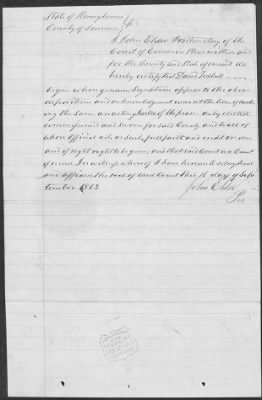 State of Pennsylvania
County of Lawrence } ss.
I John Elder Prothonotary of the
Court of Common Pleas within and
for the County and State aforesaid do
hereby certify that David
Esqr. whose genuine signature appears to the above
deposition and acknowledgment was at the time of taking
the same an acting Justice of the peace duly elected
commissioned and sworn for said County and to all of
whose Official acts as such, full faith and credit are due
and of right ought to be given; and that said Court is a Court
of record. In witness whereof I have hereunto set my hand
and affixed the seal of said Court this 16 day of Sep
tember 1862.
John Elder
Pro